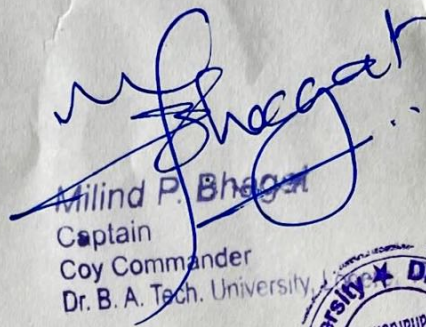 M Bhagat
Milind P. Bhagat
Captain
Coy Commander
Dr. B. A. Tech. University,